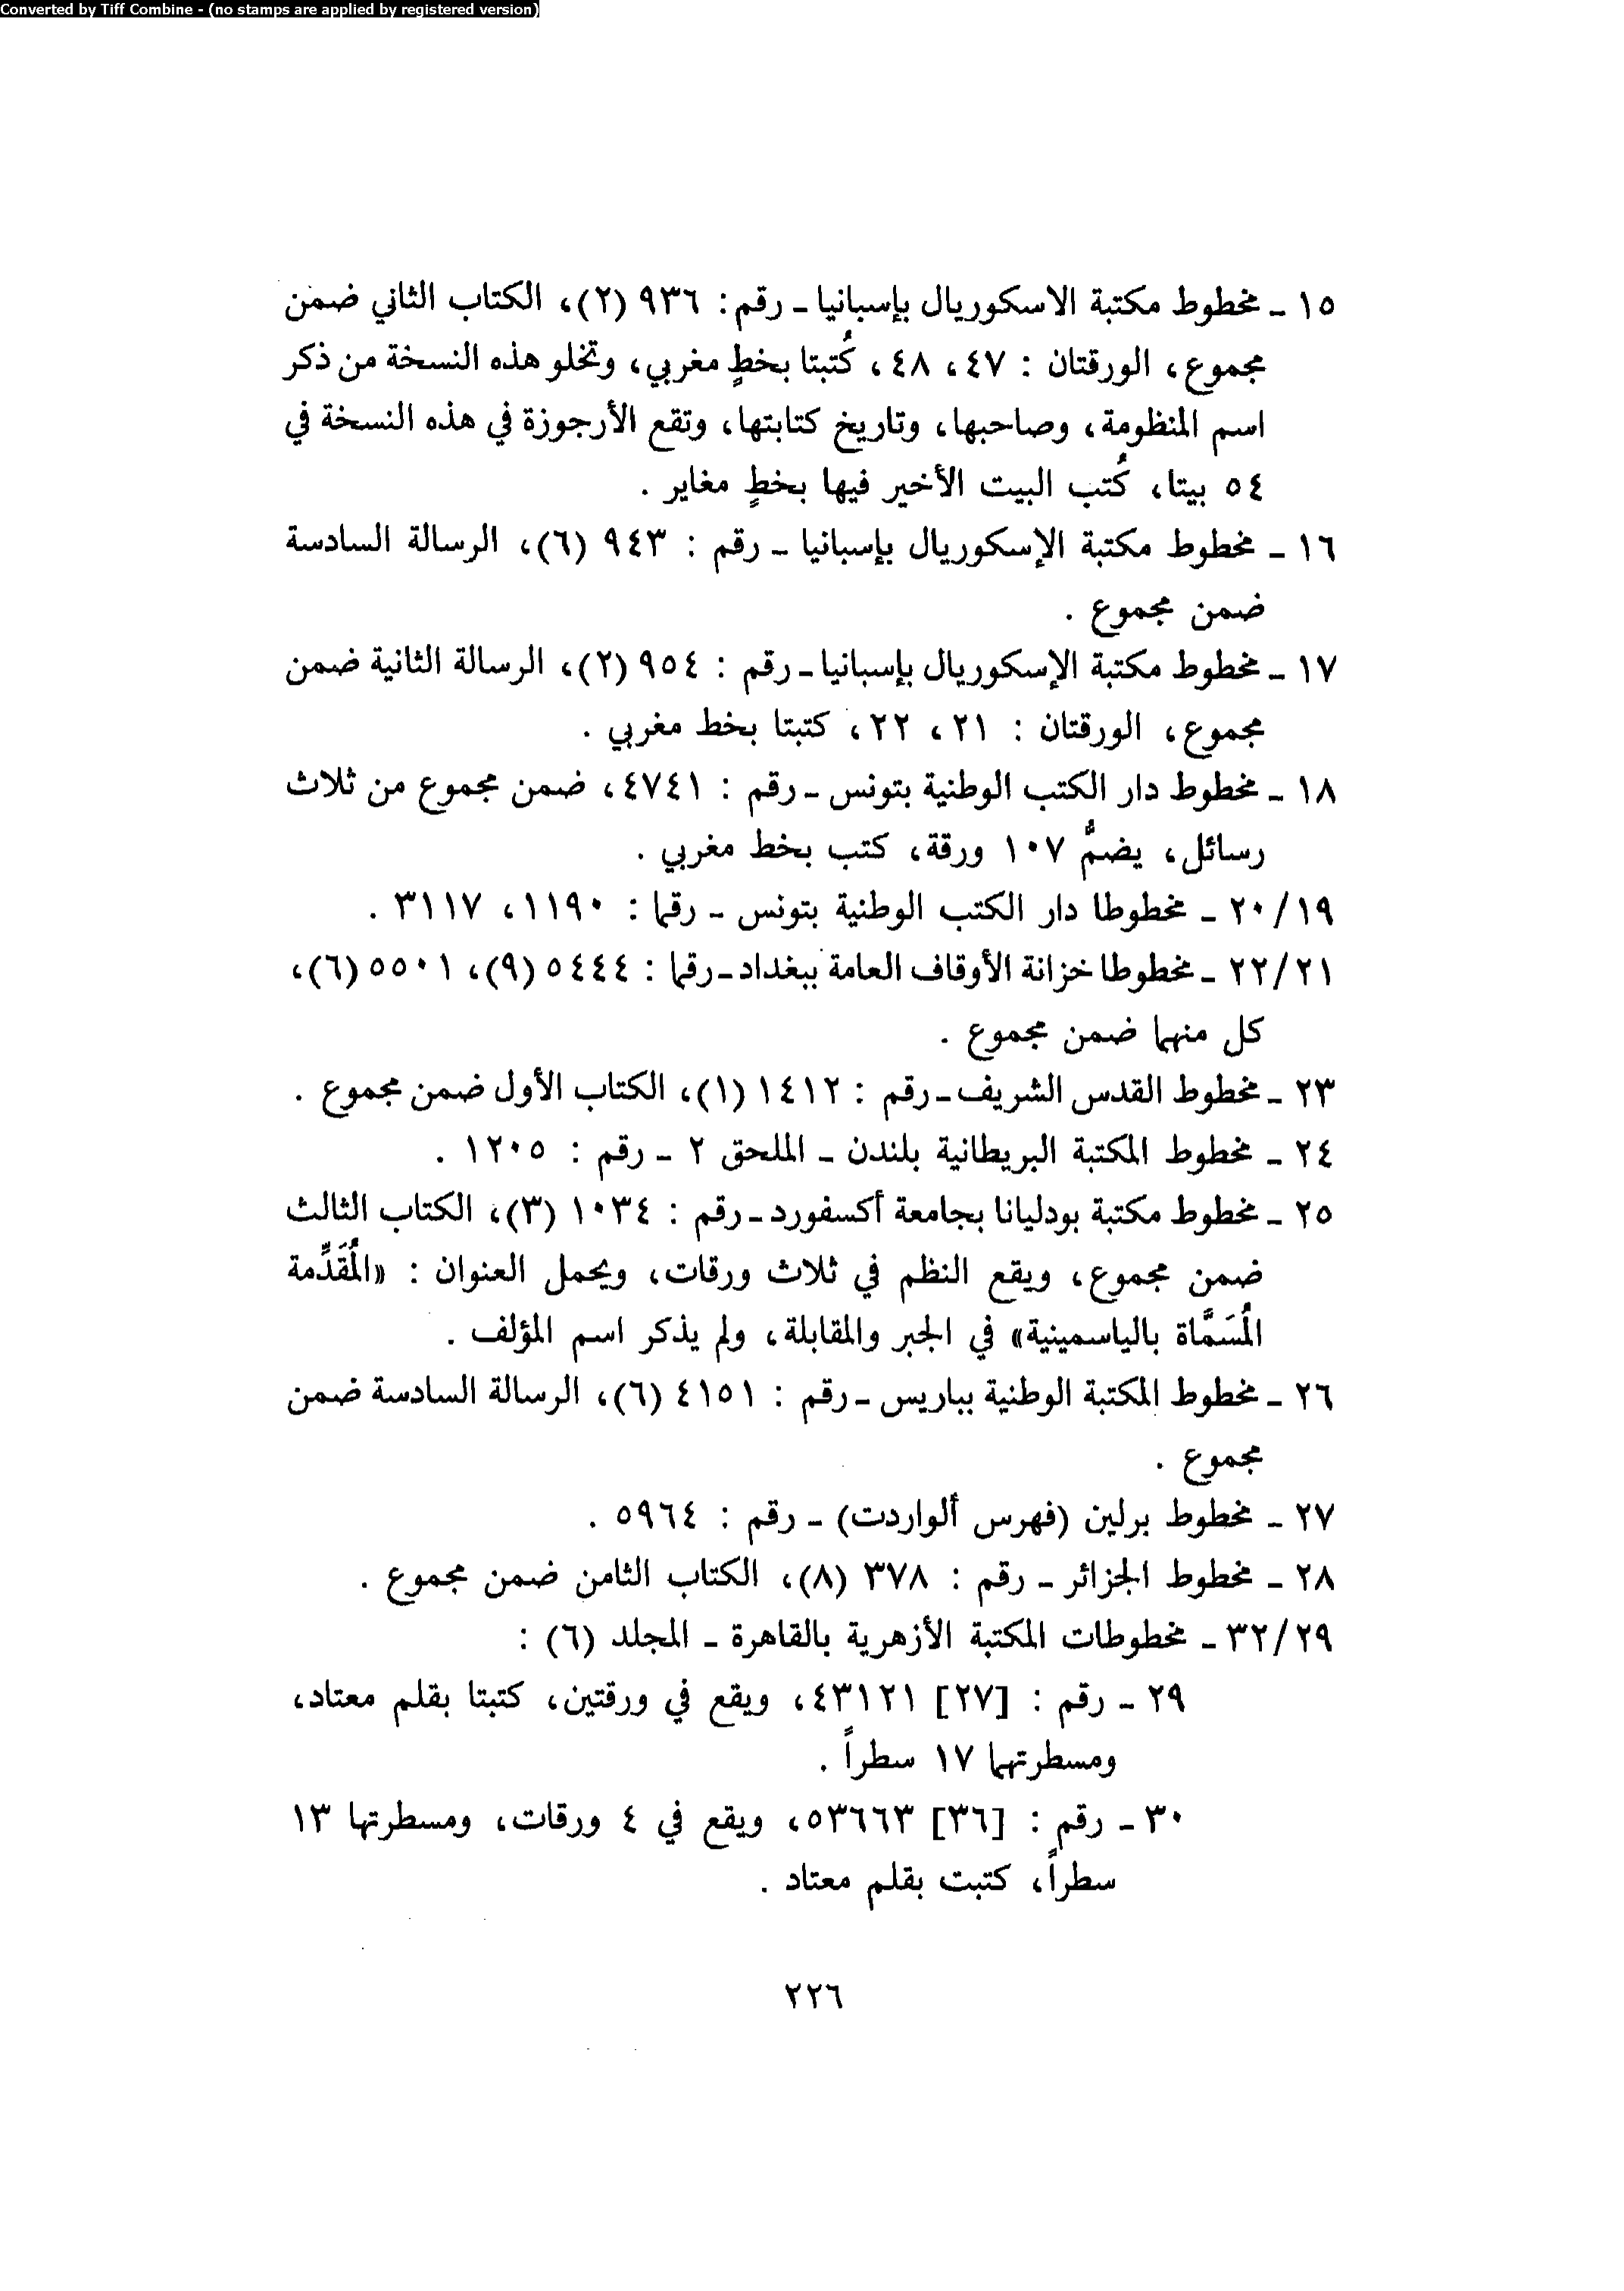 Converted by Tiff Combine - (no stamps are applied by registered version)
١٥ - مخطوط مكتبة الاسكوريال بإسبانيا - رقم : ٩٣٦ (٢)، الكتاب الثاني ضمن
مجموع، الورقتان : ٤٧، ٤٨، كُتبتا بخطٍ مغربي، وتخلو هذه النسخة من ذكر
اسم المنظومة، وصاحبها، وتاريخ كتابتها، وتقع الأرجوزة في هذه النسخة في
٥٤ بيتا، كُتب البيت الأخير فيها بخطٍ مغاير .
١٦ - مخطوط مكتبة الإسكوريال بإسبانيا - رقم : ٩٤٣ (٦)، الرسالة السادسة
ضمن مجموع .
١٧ - مخطوط مكتبة الإسكوريال بإسبانيا - رقم : ٩٥٤ (٢)، الرسالة الثانية ضمن
مجموع، الورقتان : ٢١، ٢٢، كتبتا بخط مغربي .
١٨ - مخطوط دار الكتب الوطنية بتونس - رقم : ٤٧٤١، ضمن مجموع من ثلاث
رسائل، يضمُّ ١٠٧ ورقة، كتب بخط مغربي .
٢٠/١٩ - مخطوطا دار الكتب الوطنية بتونس - رقما : ١١٩٠، ٣١١٧ .
٢٢/٢١ - مخطوطا خزانة الأوقاف العامة ببغداد - رقما : ٥٤٤٤ (٩)، ٥٥٠١ (٦)،
كل منهما ضمن مجموع .
٢٣ - مخطوط القدس الشريف - رقم : ١٤١٢ (١)، الكتاب الأول ضمن مجموع .
٢٤ - مخطوط المكتبة البريطانية بلندن - الملحق ٢ - رقم : ١٢٠٥ .
٢٥ - مخطوط مكتبة بودليانا بجامعة أكسفورد - رقم : ١٠٣٤ (٣)، الكتاب الثالث
ضمن مجموع، ويقع النظم في ثلاث ورقات، ويحمل العنوان : «المُقَدِّمة
المُسَمَّاة بالياسمينية» في الجبر والمقابلة، ولم يذكر اسم المؤلف .
٢٦ - مخطوط المكتبة الوطنية بباريس - رقم : ٤١٥١ (٦)، الرسالة السادسة ضمن
مجموع .
٢٧ - مخطوط برلين (فهرس ألواردت) - رقم : ٥٩٦٤ .
٢٨ - مخطوط الجزائر - رقم : ٣٧٨ (٨)، الكتاب الثامن ضمن مجموع .
٣٢/٢٩ - مخطوطات المكتبة الأزهرية بالقاهرة - المجلد (٦) :
٢٩ - رقم : [٢٧] ٤٣١٢١، ويقع في ورقتين، كتبتا بقلم معتاد،
ومسطرتهما ١٧ سطراً .
٣٠ - رقم : [٣٦] ٥٣٦٦٣، ويقع في ٤ ورقات، ومسطرتها ١٣
سطراً، كتبت بقلم معتاد .
٢٢٦